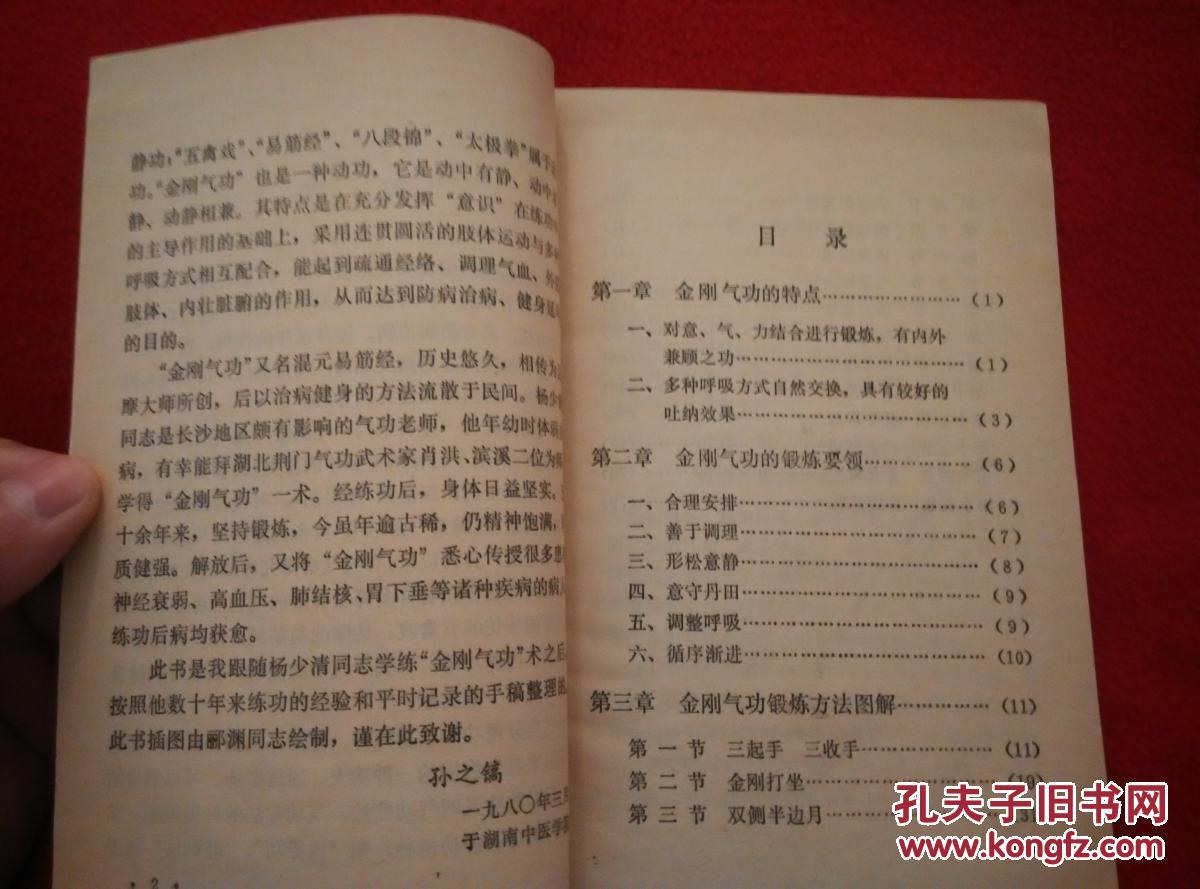 静功；“五禽戏”、“易筋经”、“八段锦”、“太极拳”属于
功。“金刚气功”也是一种动功，它是动中有静、动中
静、动静相兼。其特点是在充分发挥“意识”在练功
的主导作用的基础上，采用连贯圆活的肢体运动与多
呼吸方式相互配合，能起到疏通经络、调理气血、外
肢体、内壮脏腑的作用，从而达到防病治病、健身延
的目的。
“金刚气功”又名混元易筋经，历史悠久，相传为
摩大师所创，后以治病健身的方法流散于民间。杨少
同志是长沙地区颇有影响的气功老师，他年幼时体弱
病，有幸能拜湖北荆门气功武术家肖洪、滨溪二位为
学得“金刚气功”一术。经练功后，身体日益坚实。
十余年来，坚持锻炼，今虽年逾古稀，仍精神饱满，
质健强。解放后，又将“金刚气功”悉心传授很多患
神经衰弱、高血压、肺结核、胃下垂等诸种疾病的病人
练功后病均获愈。
此书是我跟随杨少清同志学练“金刚气功”术之后
按照他数十年来练功的经验和平时记录的手稿整理的
此书插图由郦渊同志绘制，谨在此致谢。
孙之镐
一九八〇年三月
于湖南中医学
·2·
目 录
第一章 金刚气功的特点……………………（1）
一、对意、气、力结合进行锻炼，有内外
兼顾之功……………………………………（1）
二、多种呼吸方式自然交换，具有较好的
吐纳效果……………………………………（3）
第二章 金刚气功的锻炼要领………………（6）
一、合理安排…………………………………（6）
二、善于调理…………………………………（7）
三、形松意静…………………………………（8）
四、意守丹田…………………………………（9）
五、调整呼吸…………………………………（9）
六、循序渐进…………………………………（10）
第三章 金刚气功锻炼方法图解……………（11）
第一节 三起手 三收手…………………（11）
第二节 金刚打坐…………………………（19）
第三节 双侧半边月………………………（31）
孔夫子旧书网
www.kongfz.com